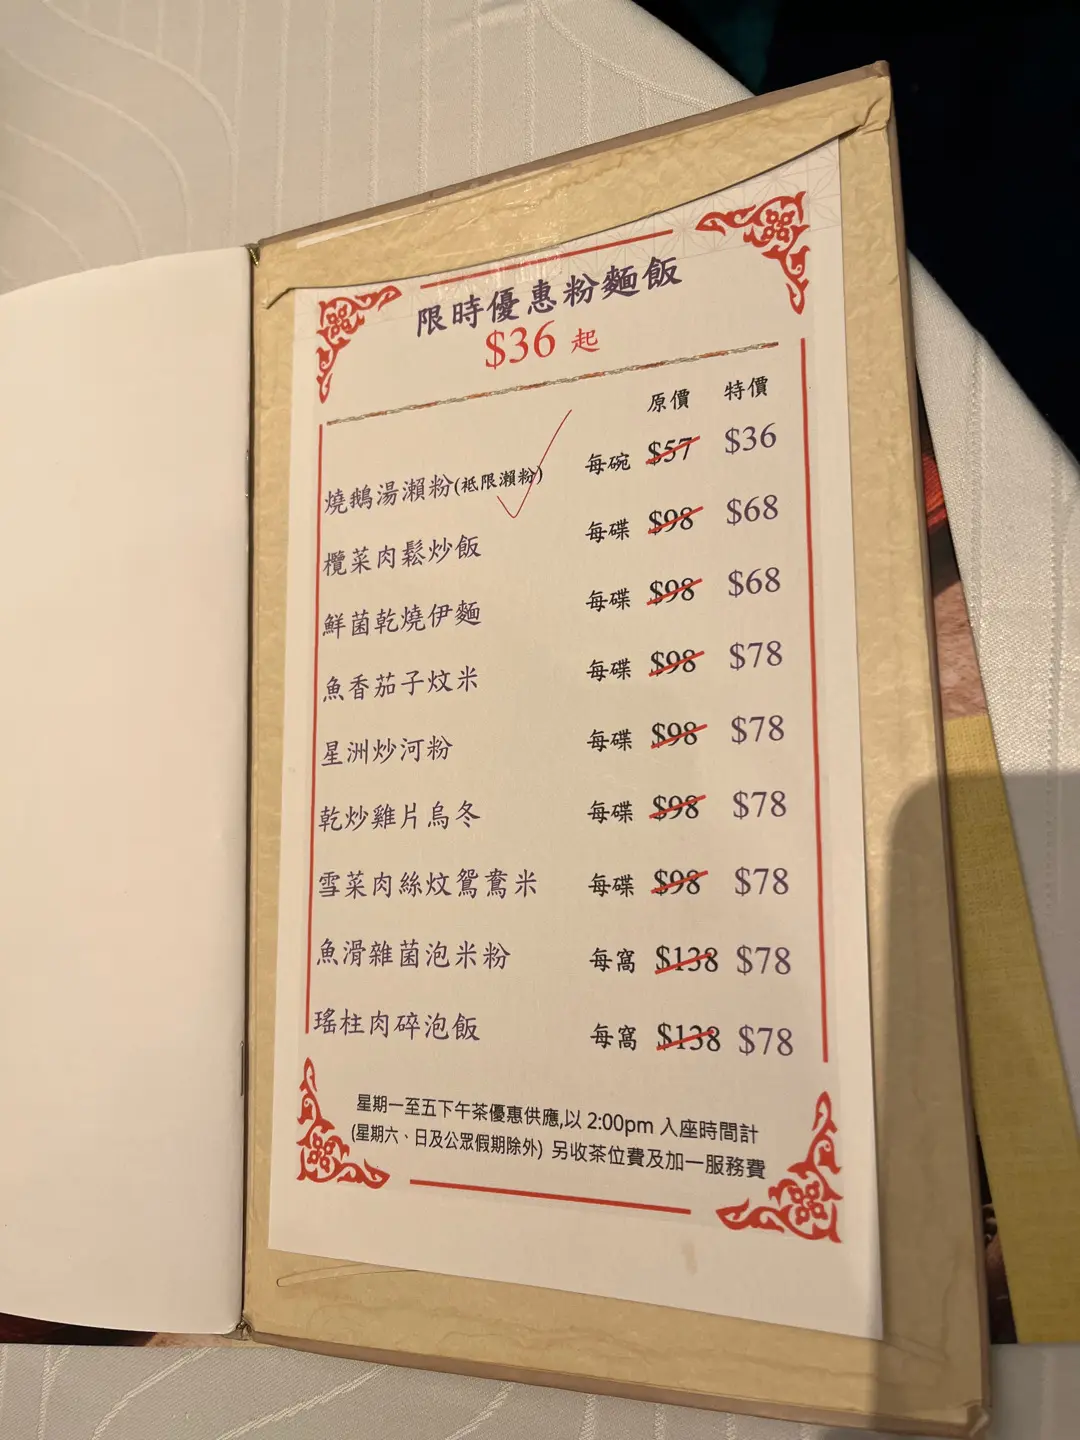 限時優惠粉麵飯
$36 起
原價 特價
燒鵝湯瀨粉(祗限瀨粉) 每碗 $57 $36
欖菜肉鬆炒飯 每碟 $98 $68
鮮菌乾燒伊麵 每碟 $98 $68
魚香茄子炆米 每碟 $98 $78
星洲炒河粉 每碟 $98 $78
乾炒雞片烏冬 每碟 $98 $78
雪菜肉絲炆鴛鴦米 每碟 $98 $78
魚滑雜菌泡米粉 每窩 $138 $78
瑤柱肉碎泡飯 每窩 $138 $78
星期一至五下午茶優惠供應,以 2:00pm 入座時間計
(星期六、日及公眾假期除外) 另收茶位費及加一服務費